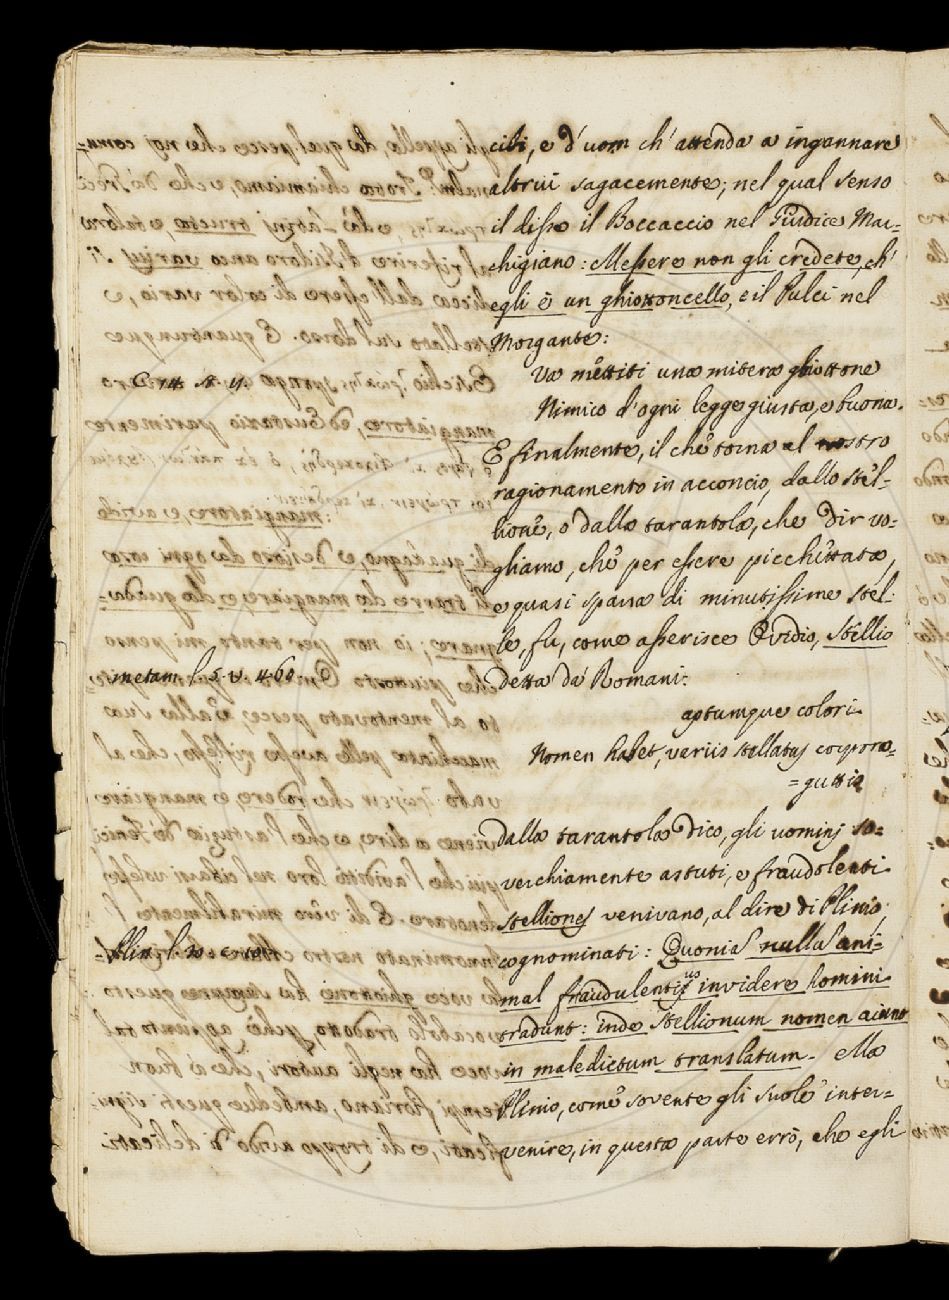 cibi, e d'uom ch'attenda a ingannare
altrui sagacemente; nel qual senso
il disse il Boccaccio nel Giudice Mar=
chigiano: Messere non gli credete, ch'
egli è un ghiottoncello, e il Pulci nel
Morgante:
Va mettiti una misera ghiottone
Nimico d'ogni legge giusta, e buona.
E finalmente, il che torna al nostro
ragionamento in acconcio, dallo stel-
lione, o dalla tarantola, che dir vo=
gliamo, che per essere picchiettata,
e quasi sparsa di minutissime stel-
le, fu, come asserisce Ovidio, Stellio
metam. l. 5. v. 460.
detta da' Romani:
aptumque colori
Nomen habet, variis stellatus corpora=
=guttis
dalla tarantola dico, gli uominj so=
verchiamente astuti, e fraudolenti
stelliones venivano, al dire di Plinio,
Plin. l.
cognominati: Quonia nullu ani=
mal fraudulentius invidere homini
tradunt: inde Stellionum nomen aiunt
in maledictum translatum. Ma
Plinio, come sovente gli suole inter=
venire, in questa parte errò, che egli